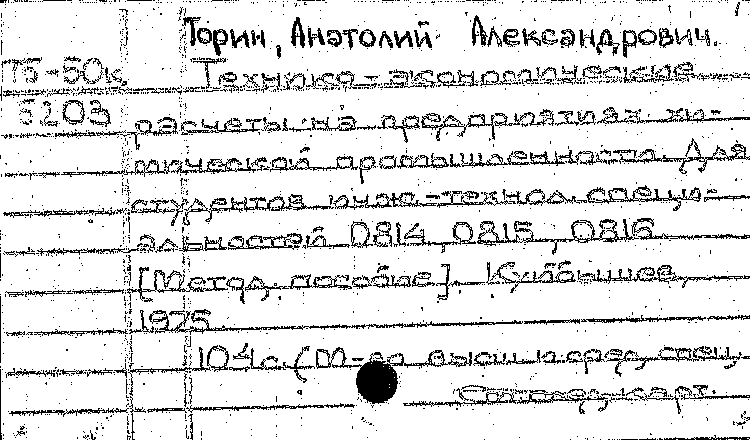 Торин, Анатолий Александрович.
Т5-50к Технико-экономические
5203 расчеты на предприятиях хи-
мической промышленности. Для
студентов инж.-технол. специ-
альностей 0814, 0815, 0816.
[Метод. пособие]. Куйбышев,
1975.
104 с. (М-во высш. и сред. спец.
карт.